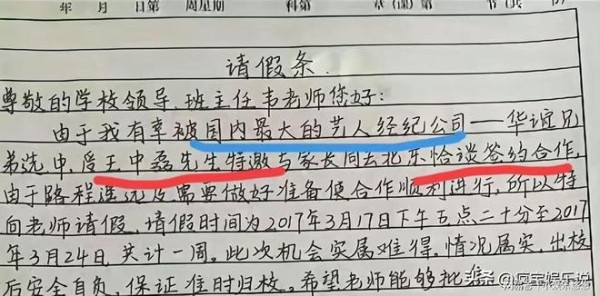 年 月 日第 周星期 科第 章(课)第 节(页)
请假条.
尊敬的学校领导、班主任韦老师您好:
由于我有幸被国内最大的艺人经纪公司——华谊兄
弟选中,受王中磊先生特邀与家长同去北京恰谈签约合作,
由于路程遥远及需要做好准备使合作顺利进行,所以特
向老师请假,请假时间为2017年3月17日下午五点二十分至2017
年3月24日,共计一周。此次机会实属难得,情况属实,出校
后安全自负,保证准时归校。希望老师能够批
头条 @疯宝娱乐说